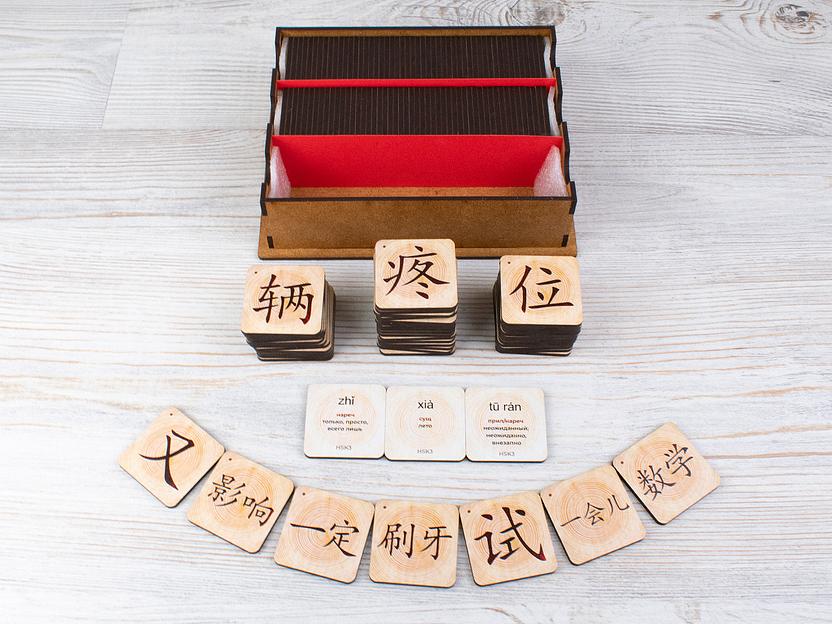 辆
疼
位
zhǐ
нареч
только, просто,
всего лишь
HSK3
xià
сущ
лето
HSK3
tū rán
прил/нареч
неожиданный,
неожиданно,
внезапно
HSK3
又
影响
一定
刷牙
试
一会儿
数学